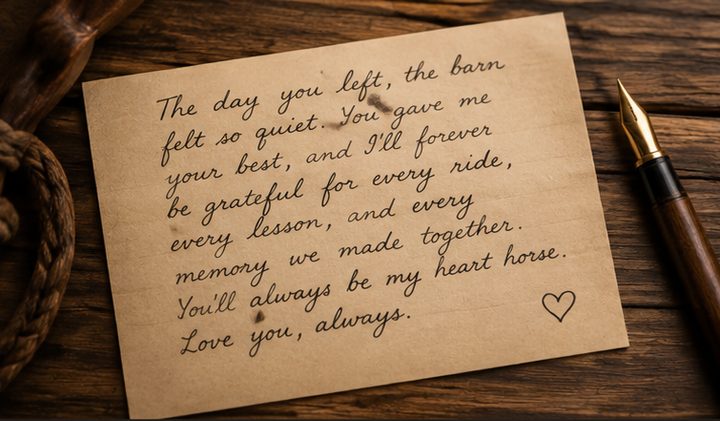 The day you left, the barn
felt so quiet. You gave me
your best, and I'll forever
be grateful for every ride,
every lesson, and every
memory we made together.
You'll always be my heart horse.
Love you, always.